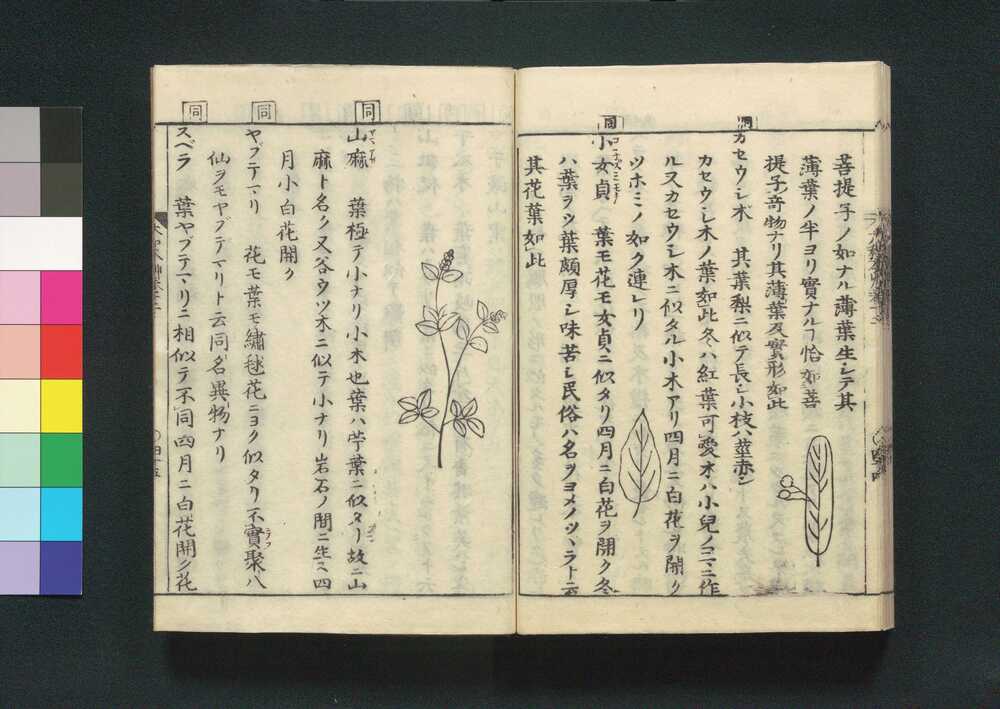 菩提子ノ如ナル薄葉生シテ其
薄葉ノ半ヨリ實ナルヿ恰如菩
提子奇物ナリ其薄葉及實形如此
同
カセウシ木 其葉梨ニ似テ長シ小枝ハ莖赤シ
カセウシ木ノ葉如此冬ハ紅葉可愛才ハ小兒ノコマニ作
ルスカセウシ木ニ似タル小木アリ四月ニ白花ヲ開ク
ツホミノ如ク連レリ
同
小女貞 葉モ花モ女貞ニ似タリ四月ニ白花ヲ開ク冬
ハ葉ヲツ葉頗厚シ味苦シ民俗ハ名ヲヨメノツヽラト云
其花葉如此
同
山麻 葉極テ小ナリ小木也葉ハ苧葉ニ似タリ故ニ山
麻ト名ク又谷ウツ木ニ似テ小ナリ岩石ノ間ニ生ス四
月小白花開ク
同
ヤブテマリ 花モ葉モ繡毬花ニヨク似タリ不實聚八
仙ヲモヤブテマリト云同名異物ナリ
同
スベラ 葉ヤブテマリニ相似テ不同四月ニ白花開ク花
四十五